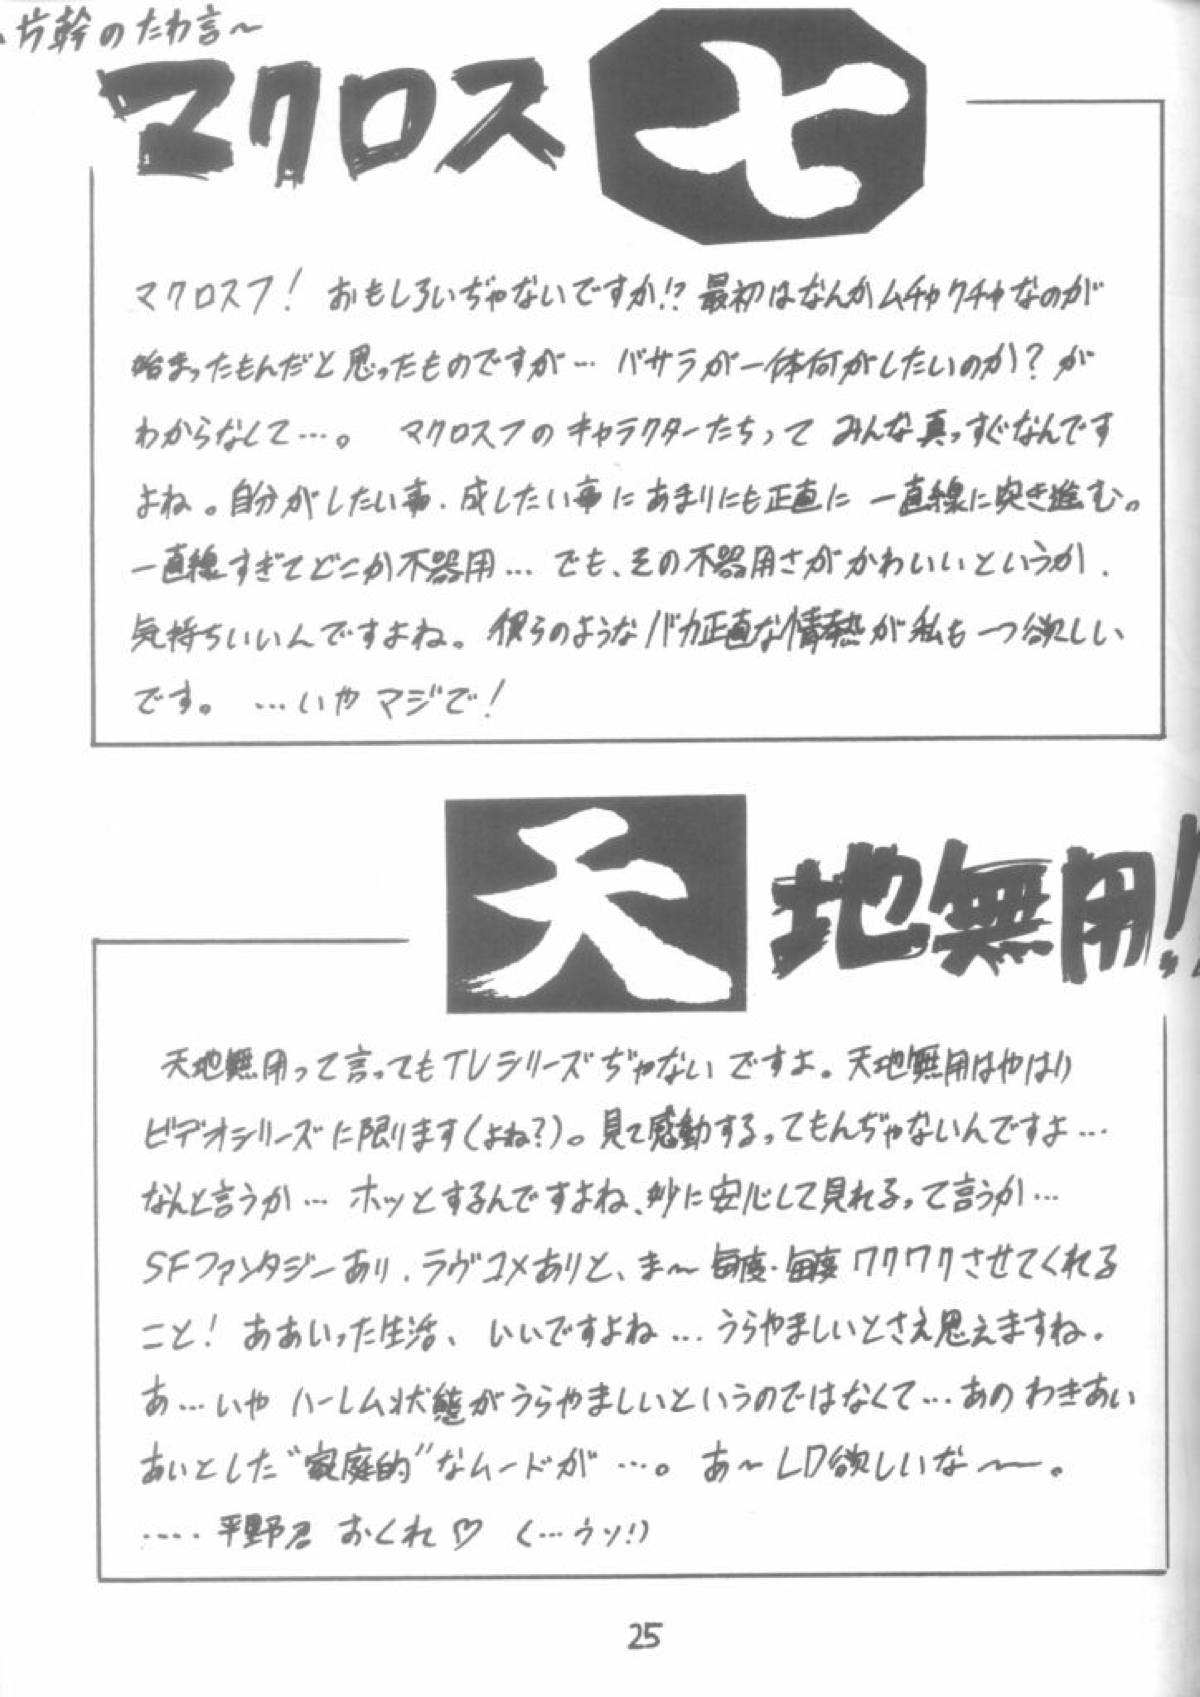 片幹のたわ言〜
マクロス七
マクロス7! おもしろいぢゃないですか!? 最初はなんかムチャクチャなのが
始まったもんだと思ったものですが… バサラが一体何がしたいのか?が
わからなくて…。 マクロス7のキャラクターたちって みんな真っすぐなんです
よね。自分がしたい事・成したい事にあまりにも正直に 一直線に突き進む。
一直線すぎてどこか不器用… でも、その不器用さがかわいいというか、
気持ちいいんですよね。彼らのようなバカ正直な情熱が私も一つ欲しい
です。 …いや マジで!
天地無用!
天地無用って言ってもTVシリーズぢゃないですよ。天地無用はやはり
ビデオシリーズに限ります(よね?)。見て感動するってもんぢゃないんですよ…
なんと言うか… ホッとするんですよね、妙に安心して見れるって言うか…
SFファンタジーあり、ラヴコメありと、ま〜毎度・毎度ワクワクさせてくれる
こと! ああいった生活、いいですよね…うらやましいとさえ思えますね。
あ…いや ハーレム状態がうらやましいというのではなくて…あの わきあい
あいとした“家庭的”なムードが …。 あ〜LD欲しいな〜。
…. 平野君 おくれ♡ (…ウソ!)
25